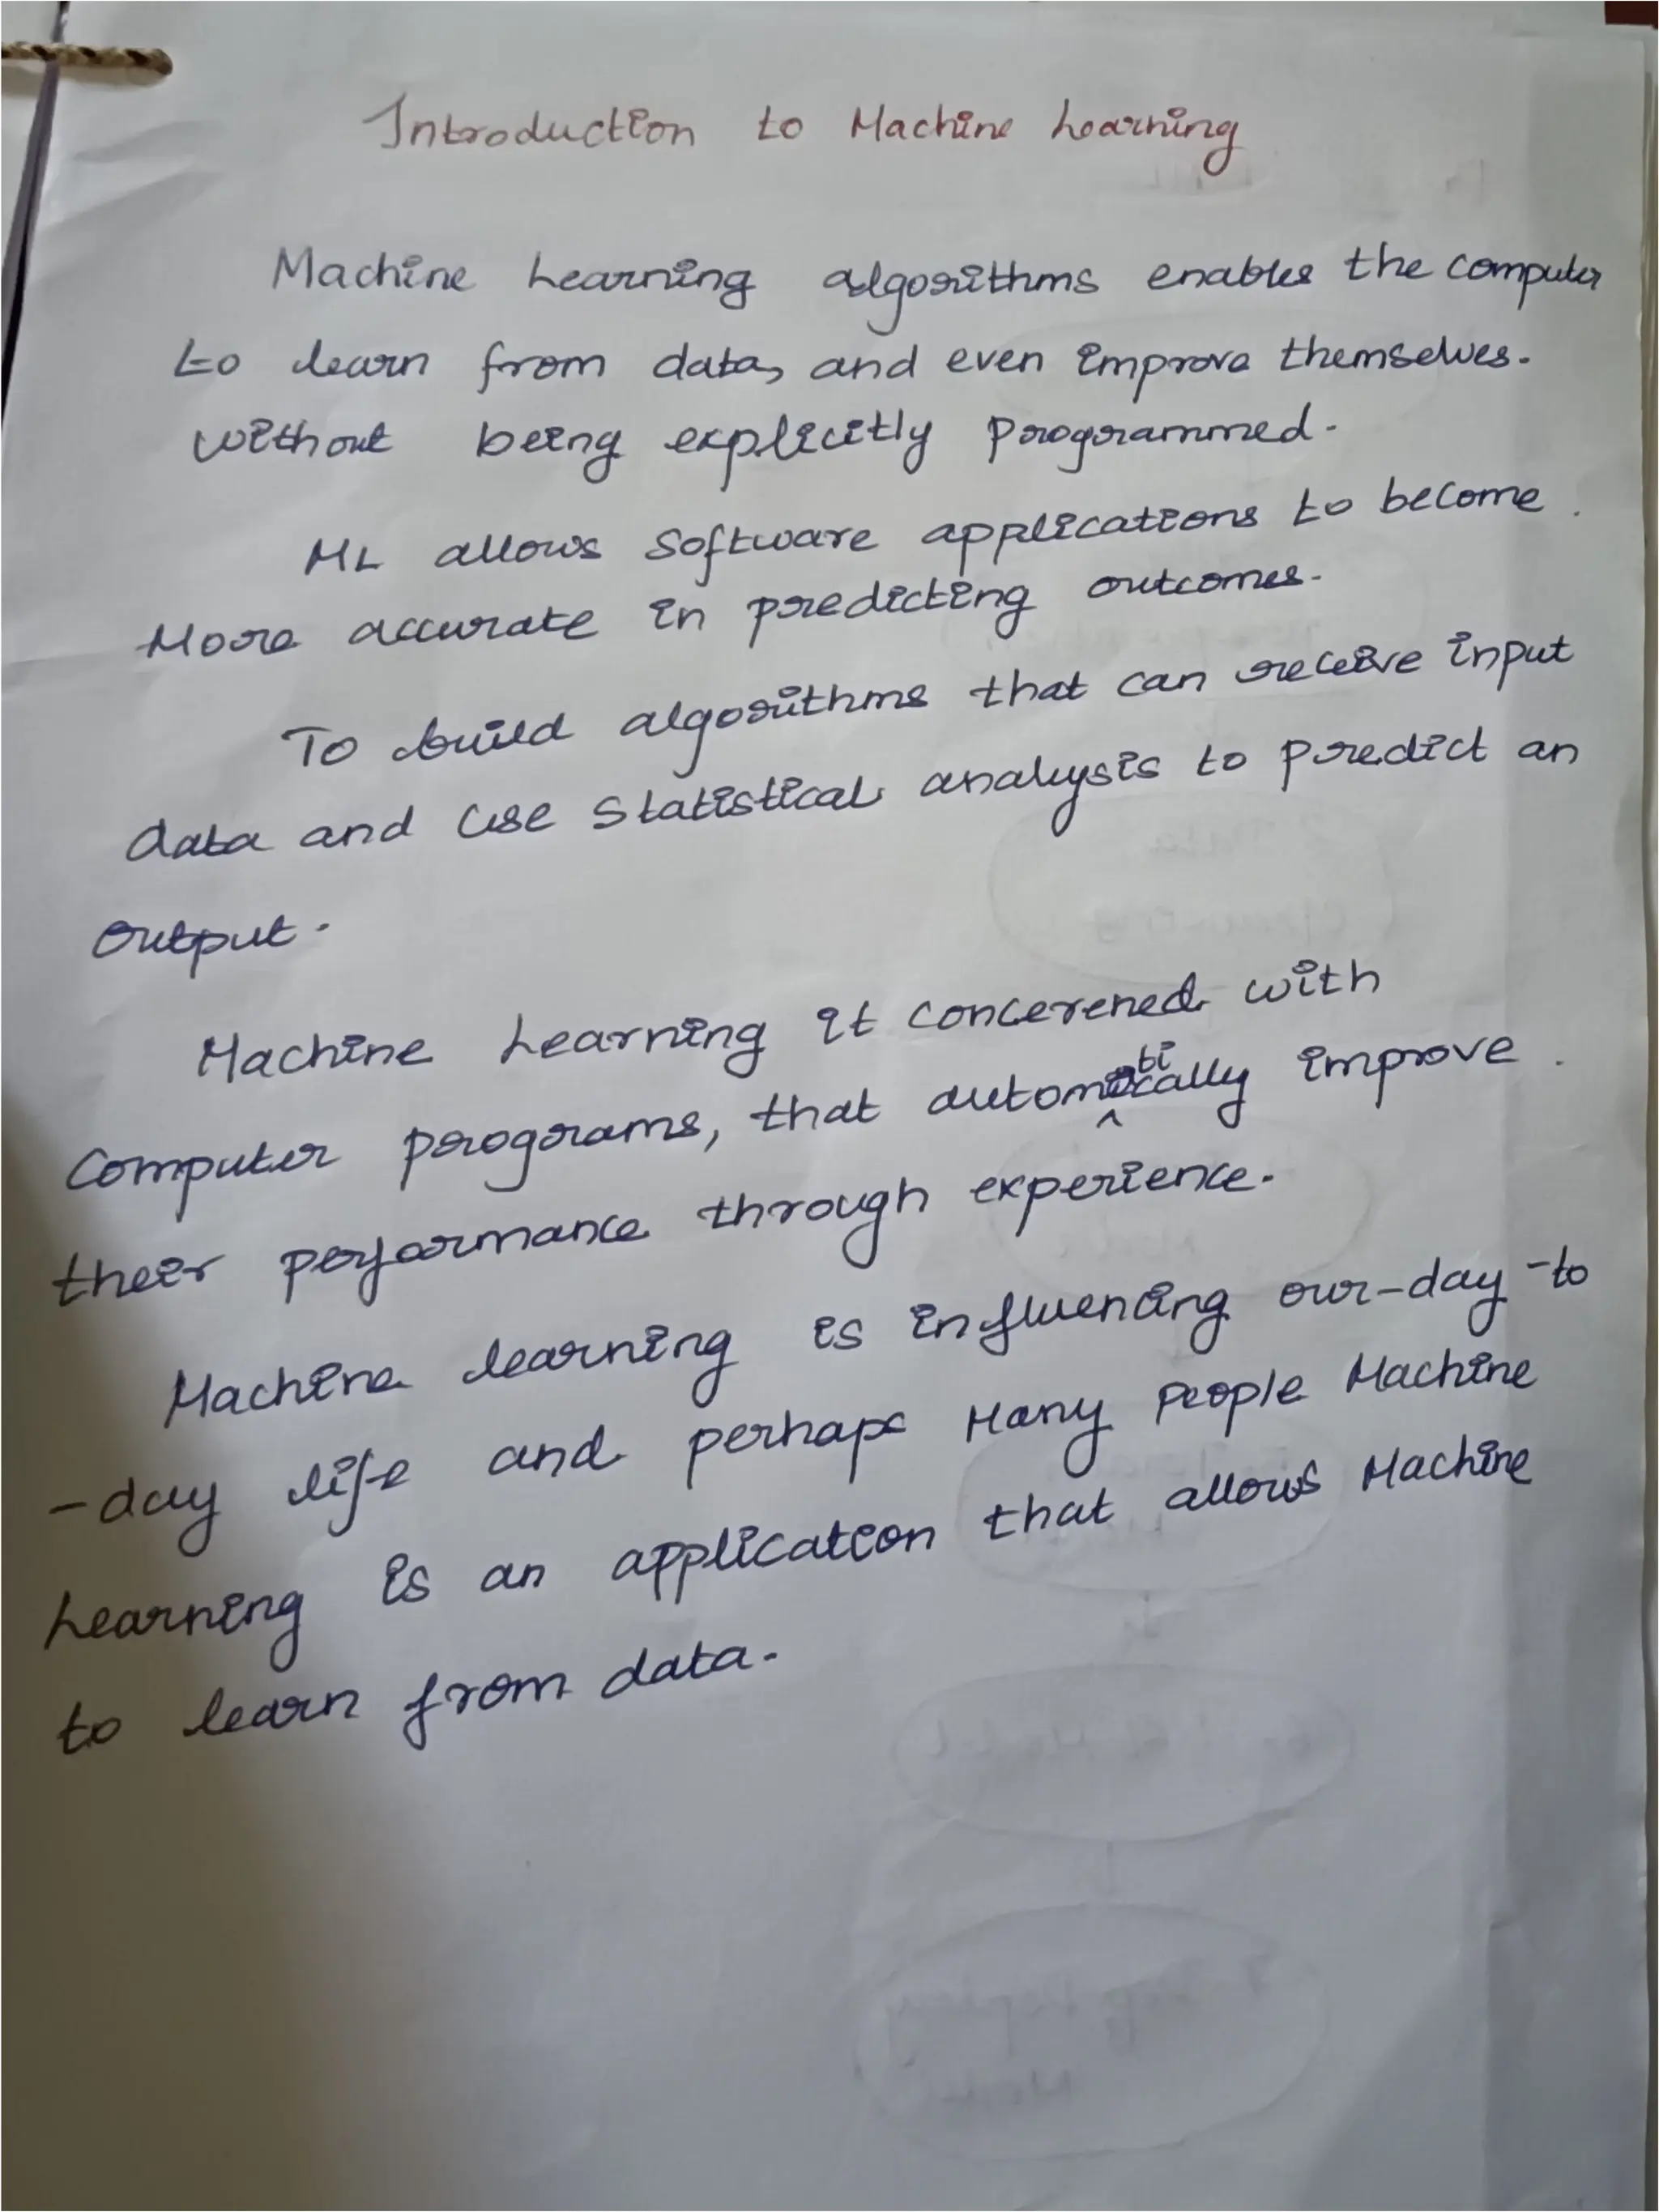 Introduction to Machine Learning
Machine Learning algorithms enables the computer
to learn from data, and even improve themselves.
without being explicitly programmed.
ML allows Software applications to become.
More accurate in predicting outcomes.
To build algorithms that can receive input
data and use Statistical analysis to predict an
output.
Machine Learning it concerened with
Computer programs, that automatically improve.
their performance through experience.
Machine learning is influencing our-day-to
-day life and perhaps Many People Machine
Learning is an application that allows Machine
to learn from data.